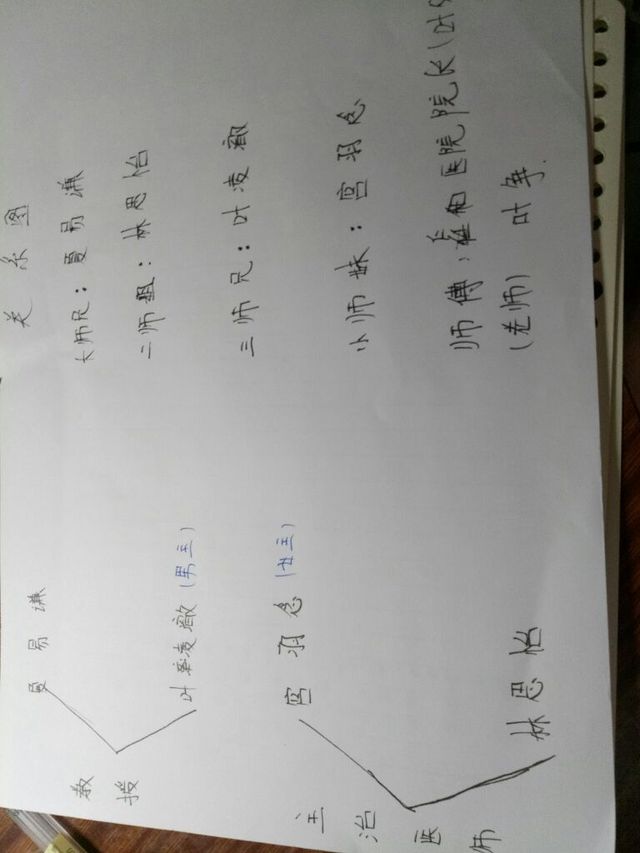 关系图
大师兄：曼易谦
二师姐：林思怡
三师兄：叶凌澈
小师妹：宫羽念
师傅：医院院长（叶
（老师）叶争.
教授
曼易谦
叶凌澈（男主）
主治医师
宫羽念（女主）
林思怡